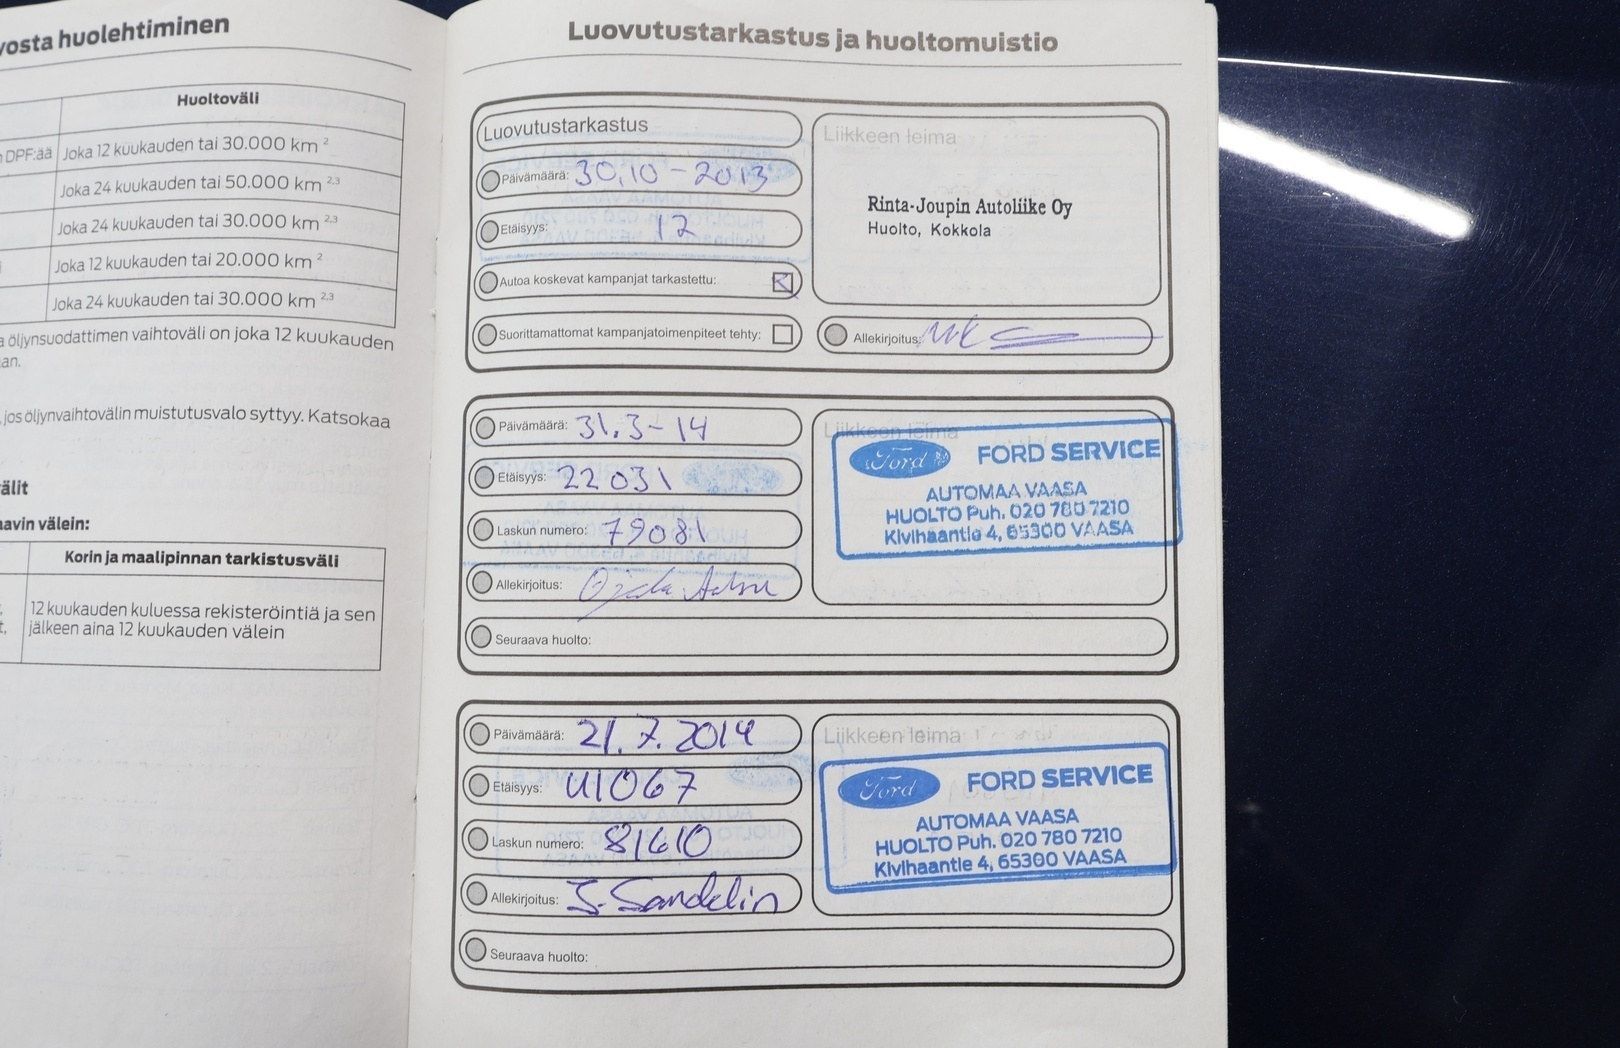 yosta huolehtiminen
Huoltoväli
DPF:ää Joka 12 kuukauden tai 30.000 km 2
Joka 24 kuukauden tai 50.000 km 2,3
Joka 24 kuukauden tai 30.000 km 2,3
Joka 12 kuukauden tai 20.000 km 2
Joka 24 kuukauden tai 30.000 km 2,3
a öljynsuodattimen vaihtoväli on joka 12 kuukauden
an.
, jos öljynvaihtovälin muistutusvalo syttyy. Katsokaa
älit
aavin välein:
Korin ja maalipinnan tarkistusväli
12 kuukauden kuluessa rekisteröintiä ja sen
jälkeen aina 12 kuukauden välein
Luovutustarkastus ja huoltomuistio
Luovutustarkastus
Päivämäärä: 30.10-2013
Etäisyys: 12
Autoa koskevat kampanjat tarkastettu:
Suorittamattomat kampanjatoimenpiteet tehty:
Liikkeen leima
Rinta-Joupin Autoliike Oy
Huolto, Kokkola
Allekirjoitus:
Päivämäärä: 31.3-14
Etäisyys: 22031
Laskun numero: 79081
Allekirjoitus:
Seuraava huolto:
Liikkeen leima
Ford FORD SERVICE
AUTOMAA VAASA
HUOLTO Puh. 020 780 7210
Kivihaantie 4, 65300 VAASA
Päivämäärä: 21.7.2014
Etäisyys: 41067
Laskun numero: 81610
Allekirjoitus: J. Sandelin
Seuraava huolto:
Liikkeen leima
Ford FORD SERVICE
AUTOMAA VAASA
HUOLTO Puh. 020 780 7210
Kivihaantie 4, 65300 VAASA